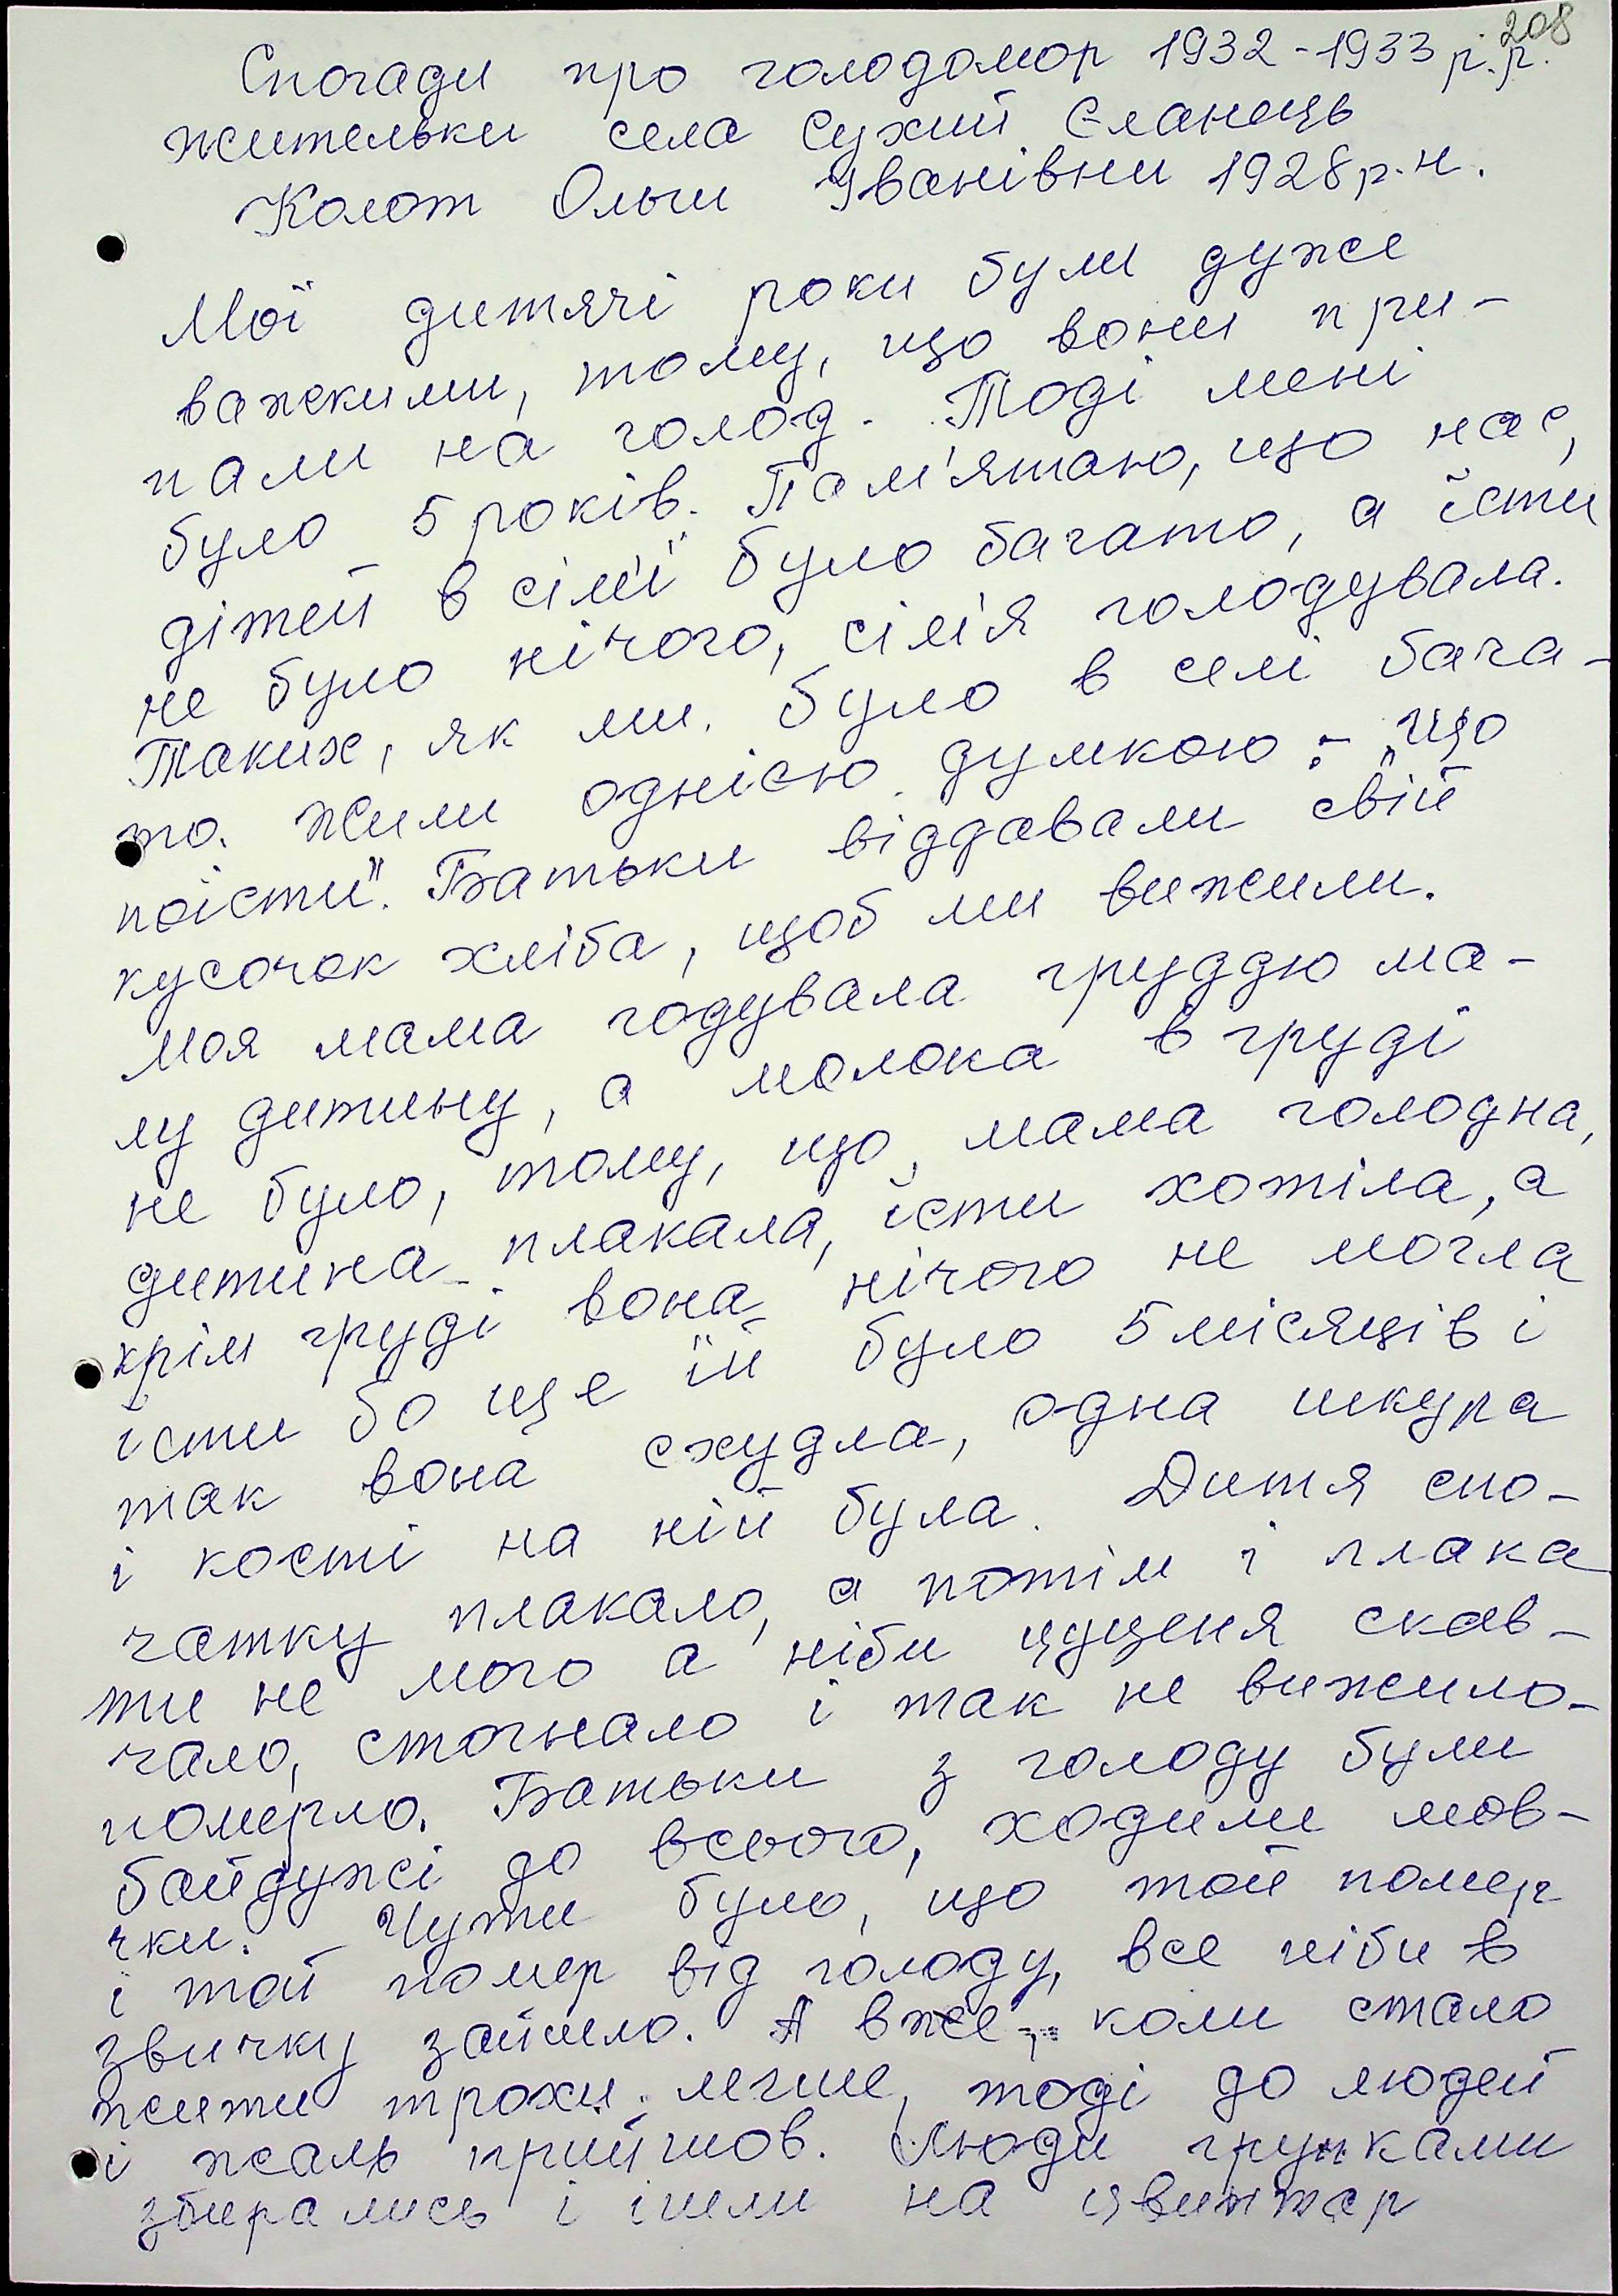 208
Спогади про голодомор 1932-1933 р.р.
жительки села Сухий Єланець
Колот Ольги Іванівни 1928 р.н.
Мої дитячі роки були дуже
важкими, тому, що вони при-
пали на голод. Тоді мені
було 5 років. Пам'ятаю, що нас,
дітей в сім'ї було багато, а їсти
не було нічого, сім'я голодувала.
Таких, як ми, було в селі бага-
то. Жили однією думкою:- „що
поїсти". Батьки віддавали свій
кусочок хліба, щоб ми вижили.
Моя мама годувала груддю ма-
лу дитину, а молока в груді
не було, тому, що мама голодна,
дитина плакала, їсти хотіла, а
крім груді вона нічого не могла
їсти бо ще їй було 5 місяців і
так вона схудла, одна шкура
і кості на ній була. Дитя спо-
чатку плакало, а потім і плака
ти не могло а ніби цуценя скав-
чало, стогнало і так не вижило-
померло. Батьки з голоду були
байдужі до всього, ходили мов-
чки. Чути було, що той помер
і той помер від голоду, все ніби в
звичку зайшло. А вже коли стало
жити трохи легше, тоді до людей
і жаль прийшов. Люди групками
збирались і ішли на цвинтар